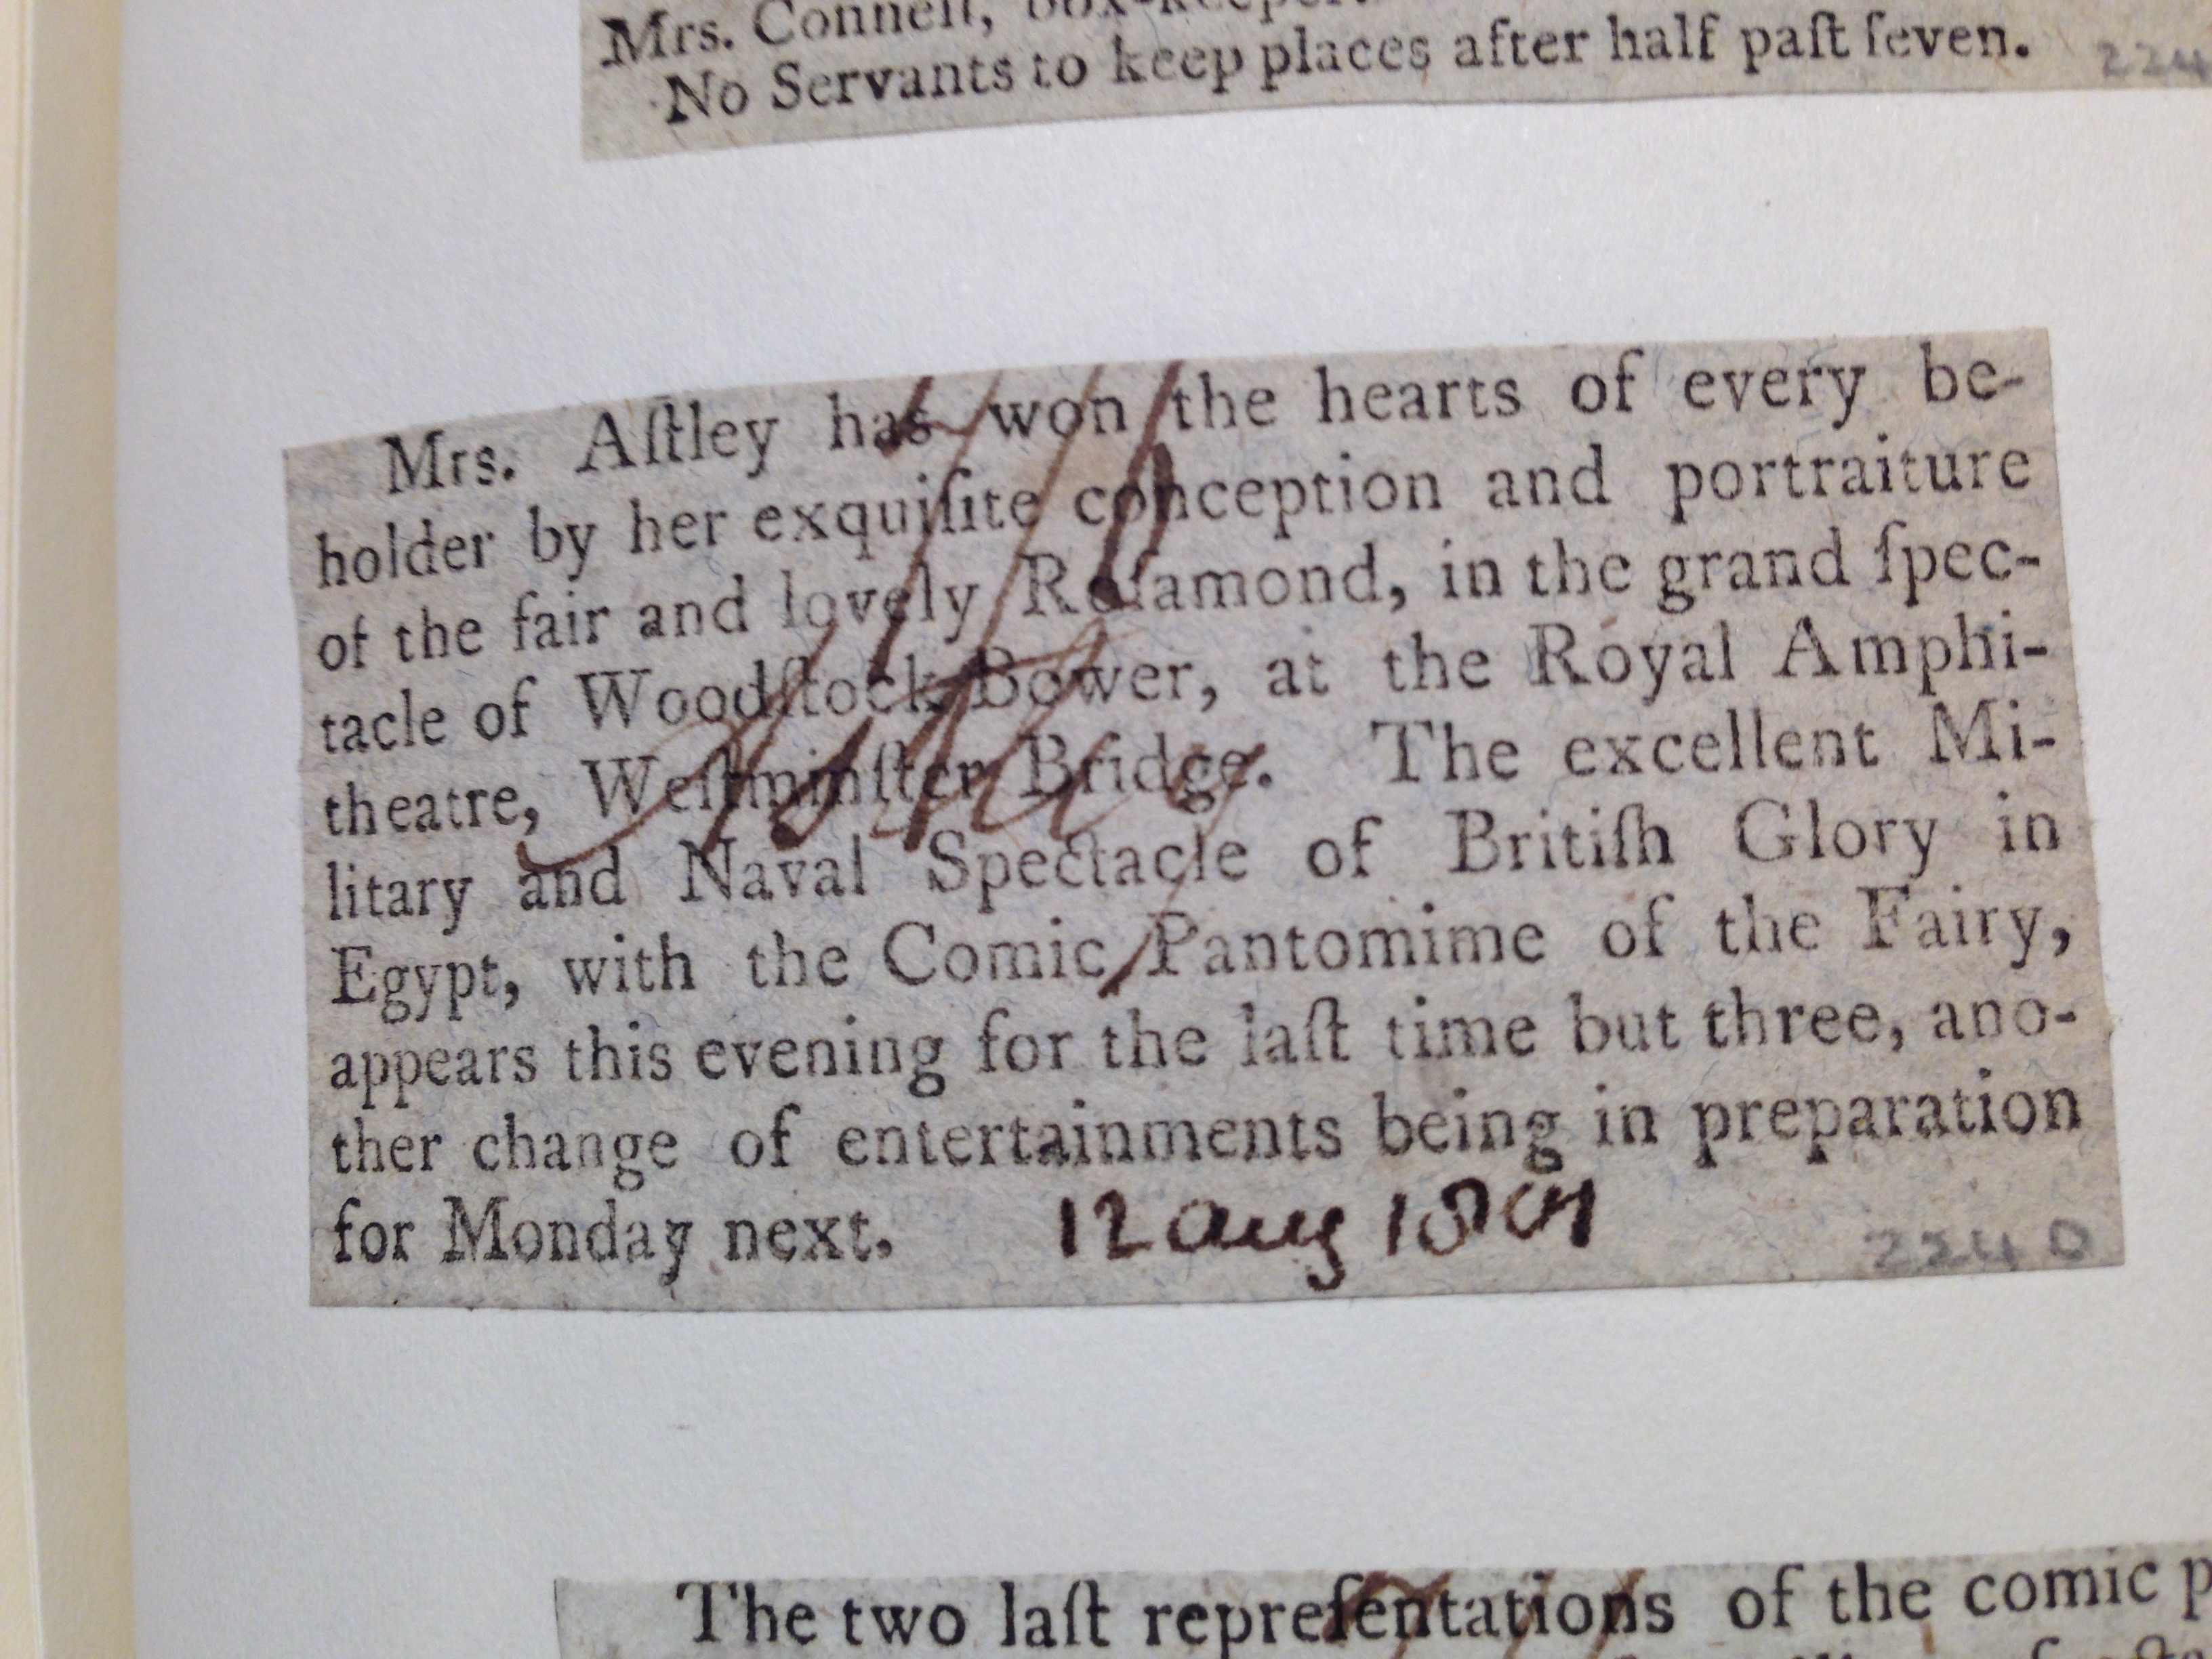 Mrs. Connell, box-keeper.
No Servants to keep places after half paſt ſeven.
224
Mrs. Aſtley has won the hearts of every be-
holder by her exquiſite conception and portraiture
of the fair and lovely Roſamond, in the grand ſpec-
tacle of Woodſtock Bower, at the Royal Amphi-
theatre, Weſtminſter Bridge. The excellent Mi-
litary and Naval Spectacle of Britiſh Glory in
Egypt, with the Comic Pantomime of the Fairy,
appears this evening for the laſt time but three, ano-
ther change of entertainments being in preparation
for Monday next. 12 aug 1801
2240
The two laſt repreſentations of the comic p